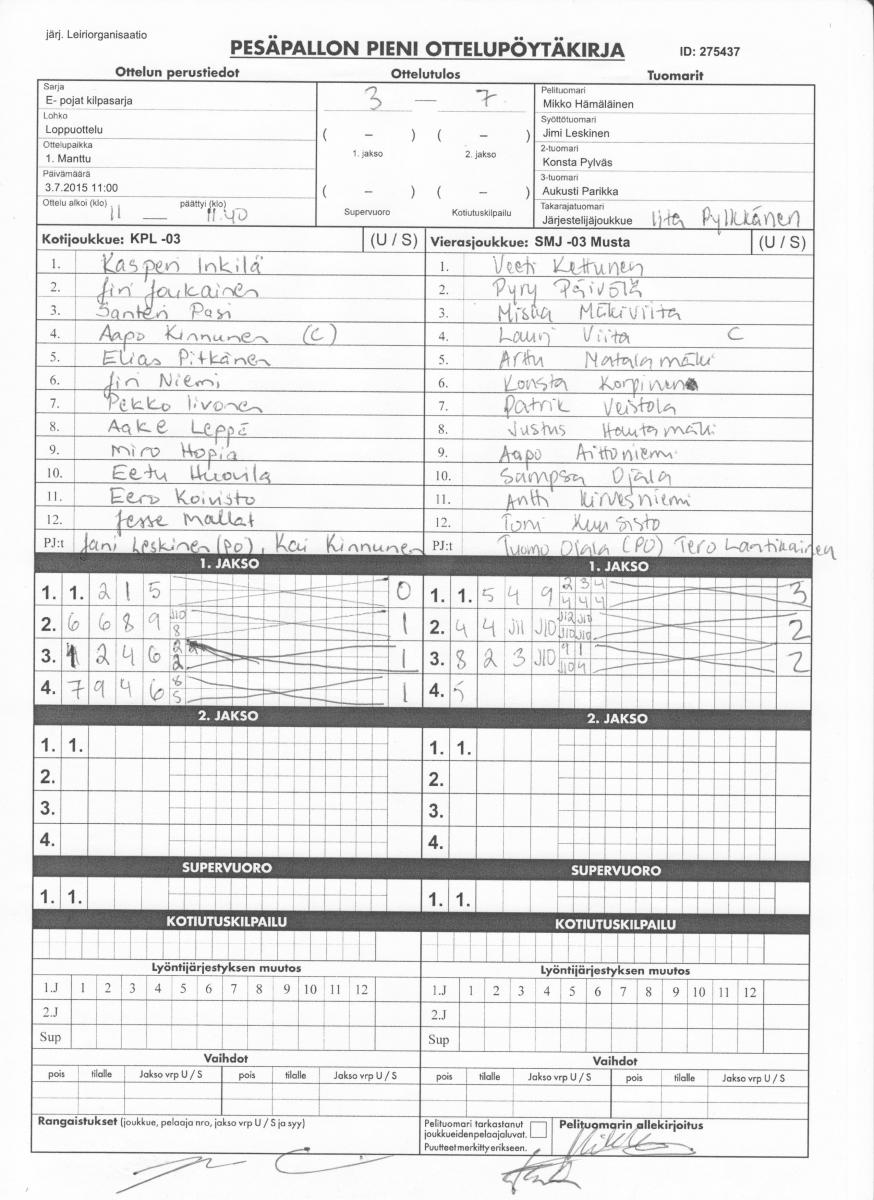 järj. Leiriorganisaatio
PESÄPALLON PIENI OTTELUPÖYTÄKIRJA
ID: 275437
Ottelun perustiedot
Ottelutulos
Tuomarit
Sarja
E- pojat kilpasarja
Lohko
Loppuottelu
Ottelupaikka
1. Manttu
Päivämäärä
3.7.2015 11:00
Ottelu alkoi (klo) 11 — päättyi (klo) 11.40
3 — 7
( – ) ( – )
1. jakso 2. jakso
( – ) ( – )
Supervuoro Kotiutuskilpailu
Pelituomari
Mikko Hämäläinen
Syöttötuomari
Jimi Leskinen
2-tuomari
Konsta Pylväs
3-tuomari
Aukusti Parikka
Takarajatuomari
Järjestelijäjoukkue Iita Pylkkänen
Kotijoukkue: KPL -03 (U / S)
1. Kasperi Inkilä
2. Jiri Joukainen
3. Santeri Pasi
4. Aapo Kinnunen (C)
5. Elias Pitkänen
6. Jiri Niemi
7. Pekko Iivonen
8. Aake Leppä
9. Miro Hopia
10. Eetu Huovila
11. Eero Koivisto
12. Jesse Mallat
PJ:t Jani Leskinen (PO), Kai Kinnunen
Vierasjoukkue: SMJ -03 Musta (U / S)
1. Veeti Kettunen
2. Pyry Päivölä
3. Miska Mäkiviita
4. Lauri Viita C
5. Arttu Matalamäki
6. Konsta Korpinen
7. Patrik Veistola
8. Justus Hautamäki
9. Aapo Aittoniemi
10. Sampsa Ojala
11. Antti Kirvesniemi
12. Tomi Kuusisto
PJ:t Tuomo Ojala (PO) Tero Lantikainen
1. JAKSO
1. 1. 2 1 5 0
2. 6 6 8 9 J10 8 1
3. 1 2 4 6 2 2 1
4. 7 9 4 6 8 5 1
1. JAKSO
1. 1. 5 4 9 2 3 4 4 4 4 3
2. 4 4 J11 J10 J12 J10 J10 J10 2
3. 8 2 3 J10 9 1 J10 4 2
4. 5
2. JAKSO
1. 1.
2.
3.
4.
2. JAKSO
1. 1.
2.
3.
4.
SUPERVUORO
1. 1.
SUPERVUORO
1. 1.
KOTIUTUSKILPAILU
KOTIUTUSKILPAILU
Lyöntijärjestyksen muutos
1.J 1 2 3 4 5 6 7 8 9 10 11 12
2.J
Sup
Lyöntijärjestyksen muutos
1.J 1 2 3 4 5 6 7 8 9 10 11 12
2.J
Sup
Vaihdot
pois tilalle Jakso vrp U / S pois tilalle Jakso vrp U / S
Vaihdot
pois tilalle Jakso vrp U / S pois tilalle Jakso vrp U / S
Rangaistukset (joukkue, pelaaja nro, jakso vrp U / S ja syy)
Pelituomari tarkastanut
joukkueidenpelaajaluvat.
Puutteet merkitty erikseen.
Pelituomarin allekirjoitus